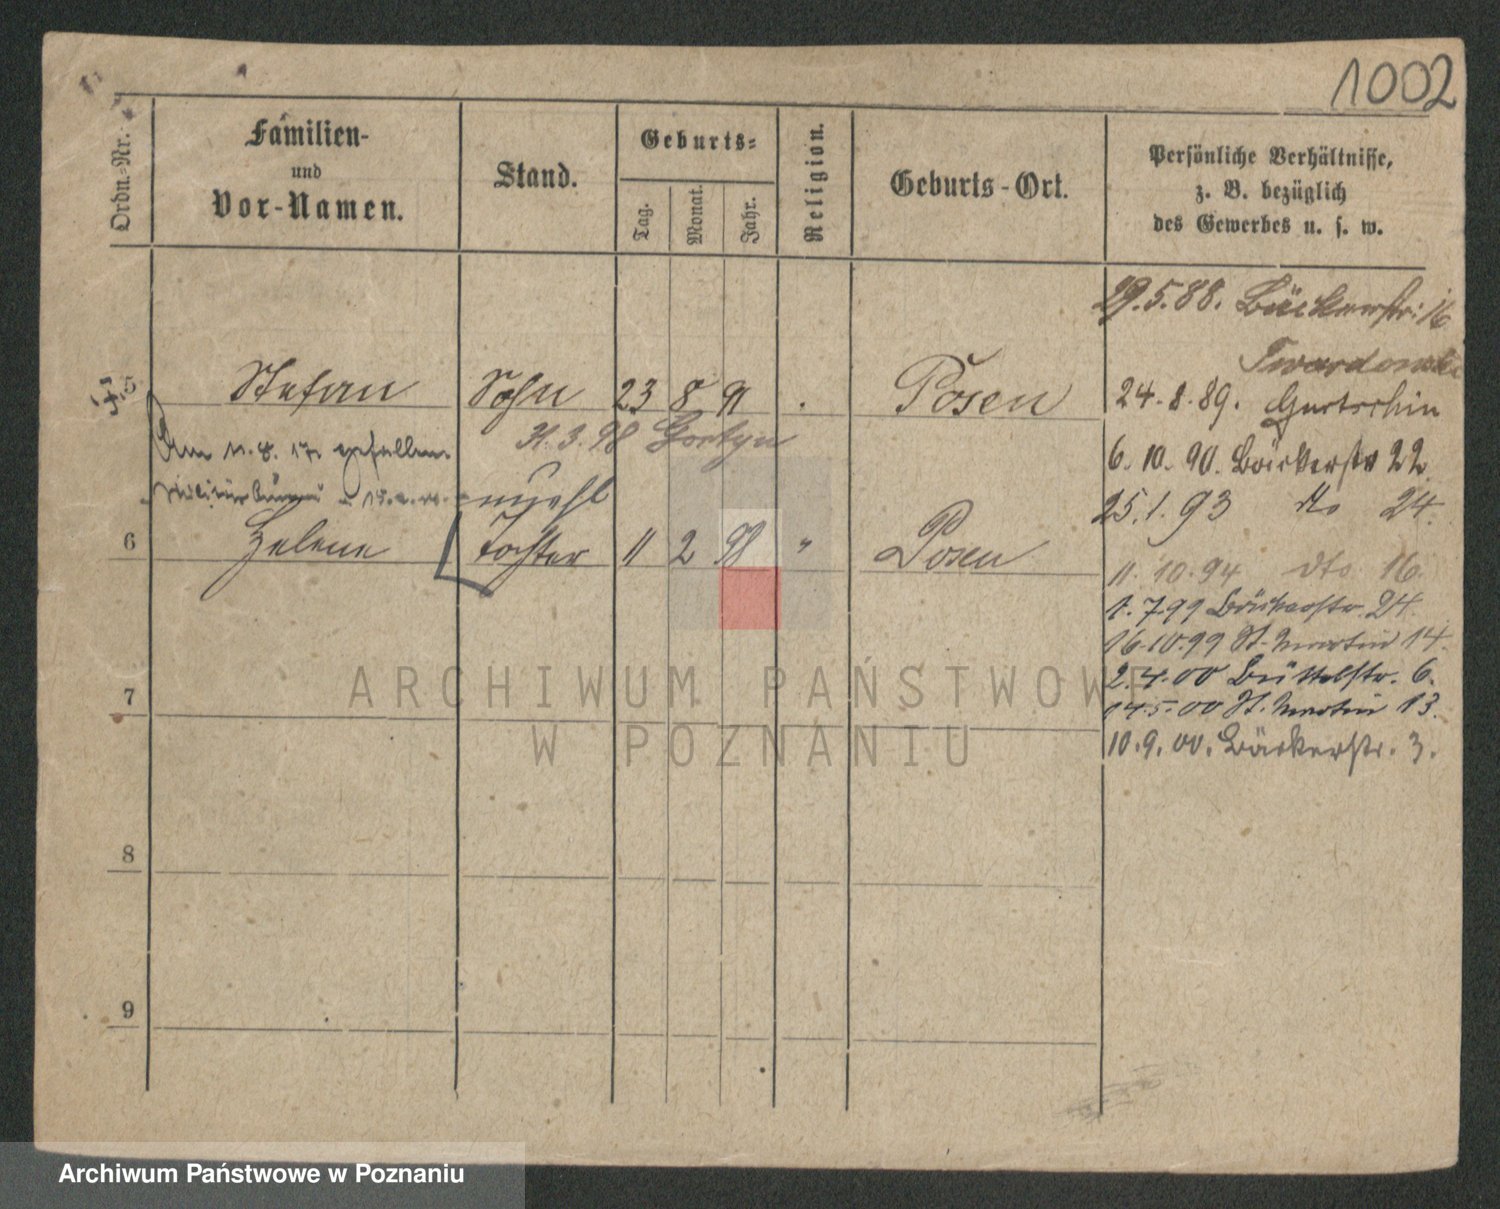 1002
Ordn.-Nr.
Familien-
und
Vor-Namen.
Stand.
Geburts-
Tag.
Monat.
Jahr.
Religion.
Geburts-Ort.
Persönliche Verhältnisse,
z. B. bezüglich
des Gewerbes u. s. w.
29.5.88. Bäckerstr. 16
Twardowski
5 Stefan Sohn 23 8 91 . Posen
24.8.89. Gurtschin
31.3.98
Am 11.8.17 gefallen
6.10.90. Bäckerstr 22
25.1.93 dto 24.
unehl
6 Helene Tochter 11 2 98 " Posen
11.10.94 dto 16.
1.7.99 Bäckerstr. 24.
16.10.99 St. Martin 14.
2.4.00 Büttelstr. 6.
14.5.00 St. Martin 13.
10.9.00. Bäckerstr. 3.
7
8
9
ARCHIWUM PAŃSTWOWE
W POZNANIU
Archiwum Państwowe w Poznaniu